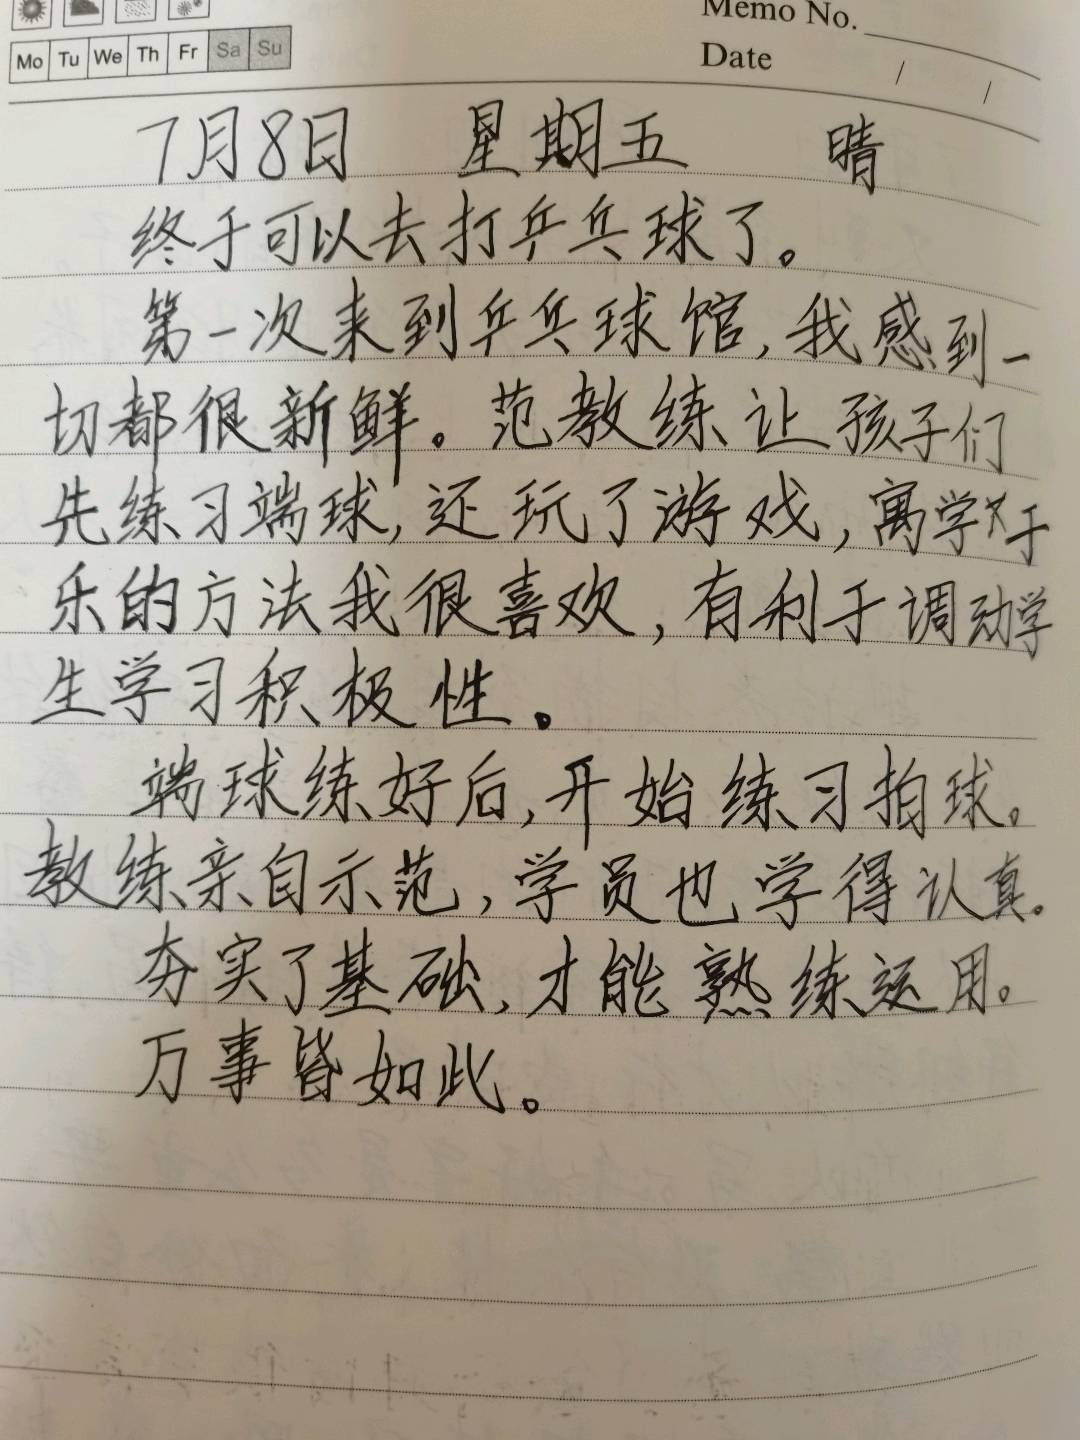 Memo No.
Mo Tu We Th Fr Sa Su
Date / /
7月8日 星期五 晴
终于可以去打乒乓球了。
第一次来到乒乓球馆,我感到一
切都很新鲜。范教练让孩子们
先练习端球,还玩了游戏,寓学于
乐的方法我很喜欢,有利于调动学
生学习积极性。
端球练好后,开始练习拍球。
教练亲自示范,学员也学得认真。
夯实了基础,才能熟练运用。
万事皆如此。